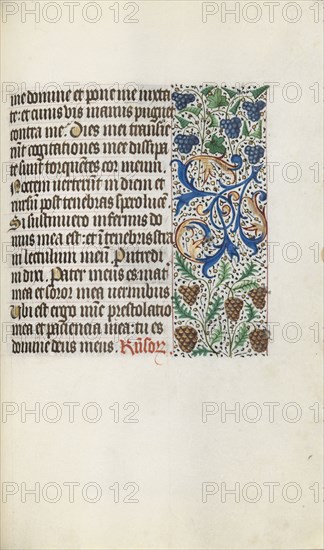 me domine et pone me iuxta
te: et cuius vis manus pugnet
contra me. Dies mei transie
rūt cogitationes mee dissipa
te sunt torquentes cor meum.
Noctem verterunt in diem et
rursū post tenebras spero lucē
Si sustinuero infernus do
mus mea est: et ī tenebris stra
vi lectulum meum. Putredi
ni dixi. Pater meus es: mat
mea et soror mea vermibus
Ubi est ergo nūc prestolatio
mea et paciencia mea: tu es
domine deus meus.
PHOTO12
PHOTO12
PHOTO12
PHOTO12
PHOTO12
PHOTO12
PHOTO12
PHOTO12
PHOTO12
PHOTO12
PHOTO12
PHOTO12